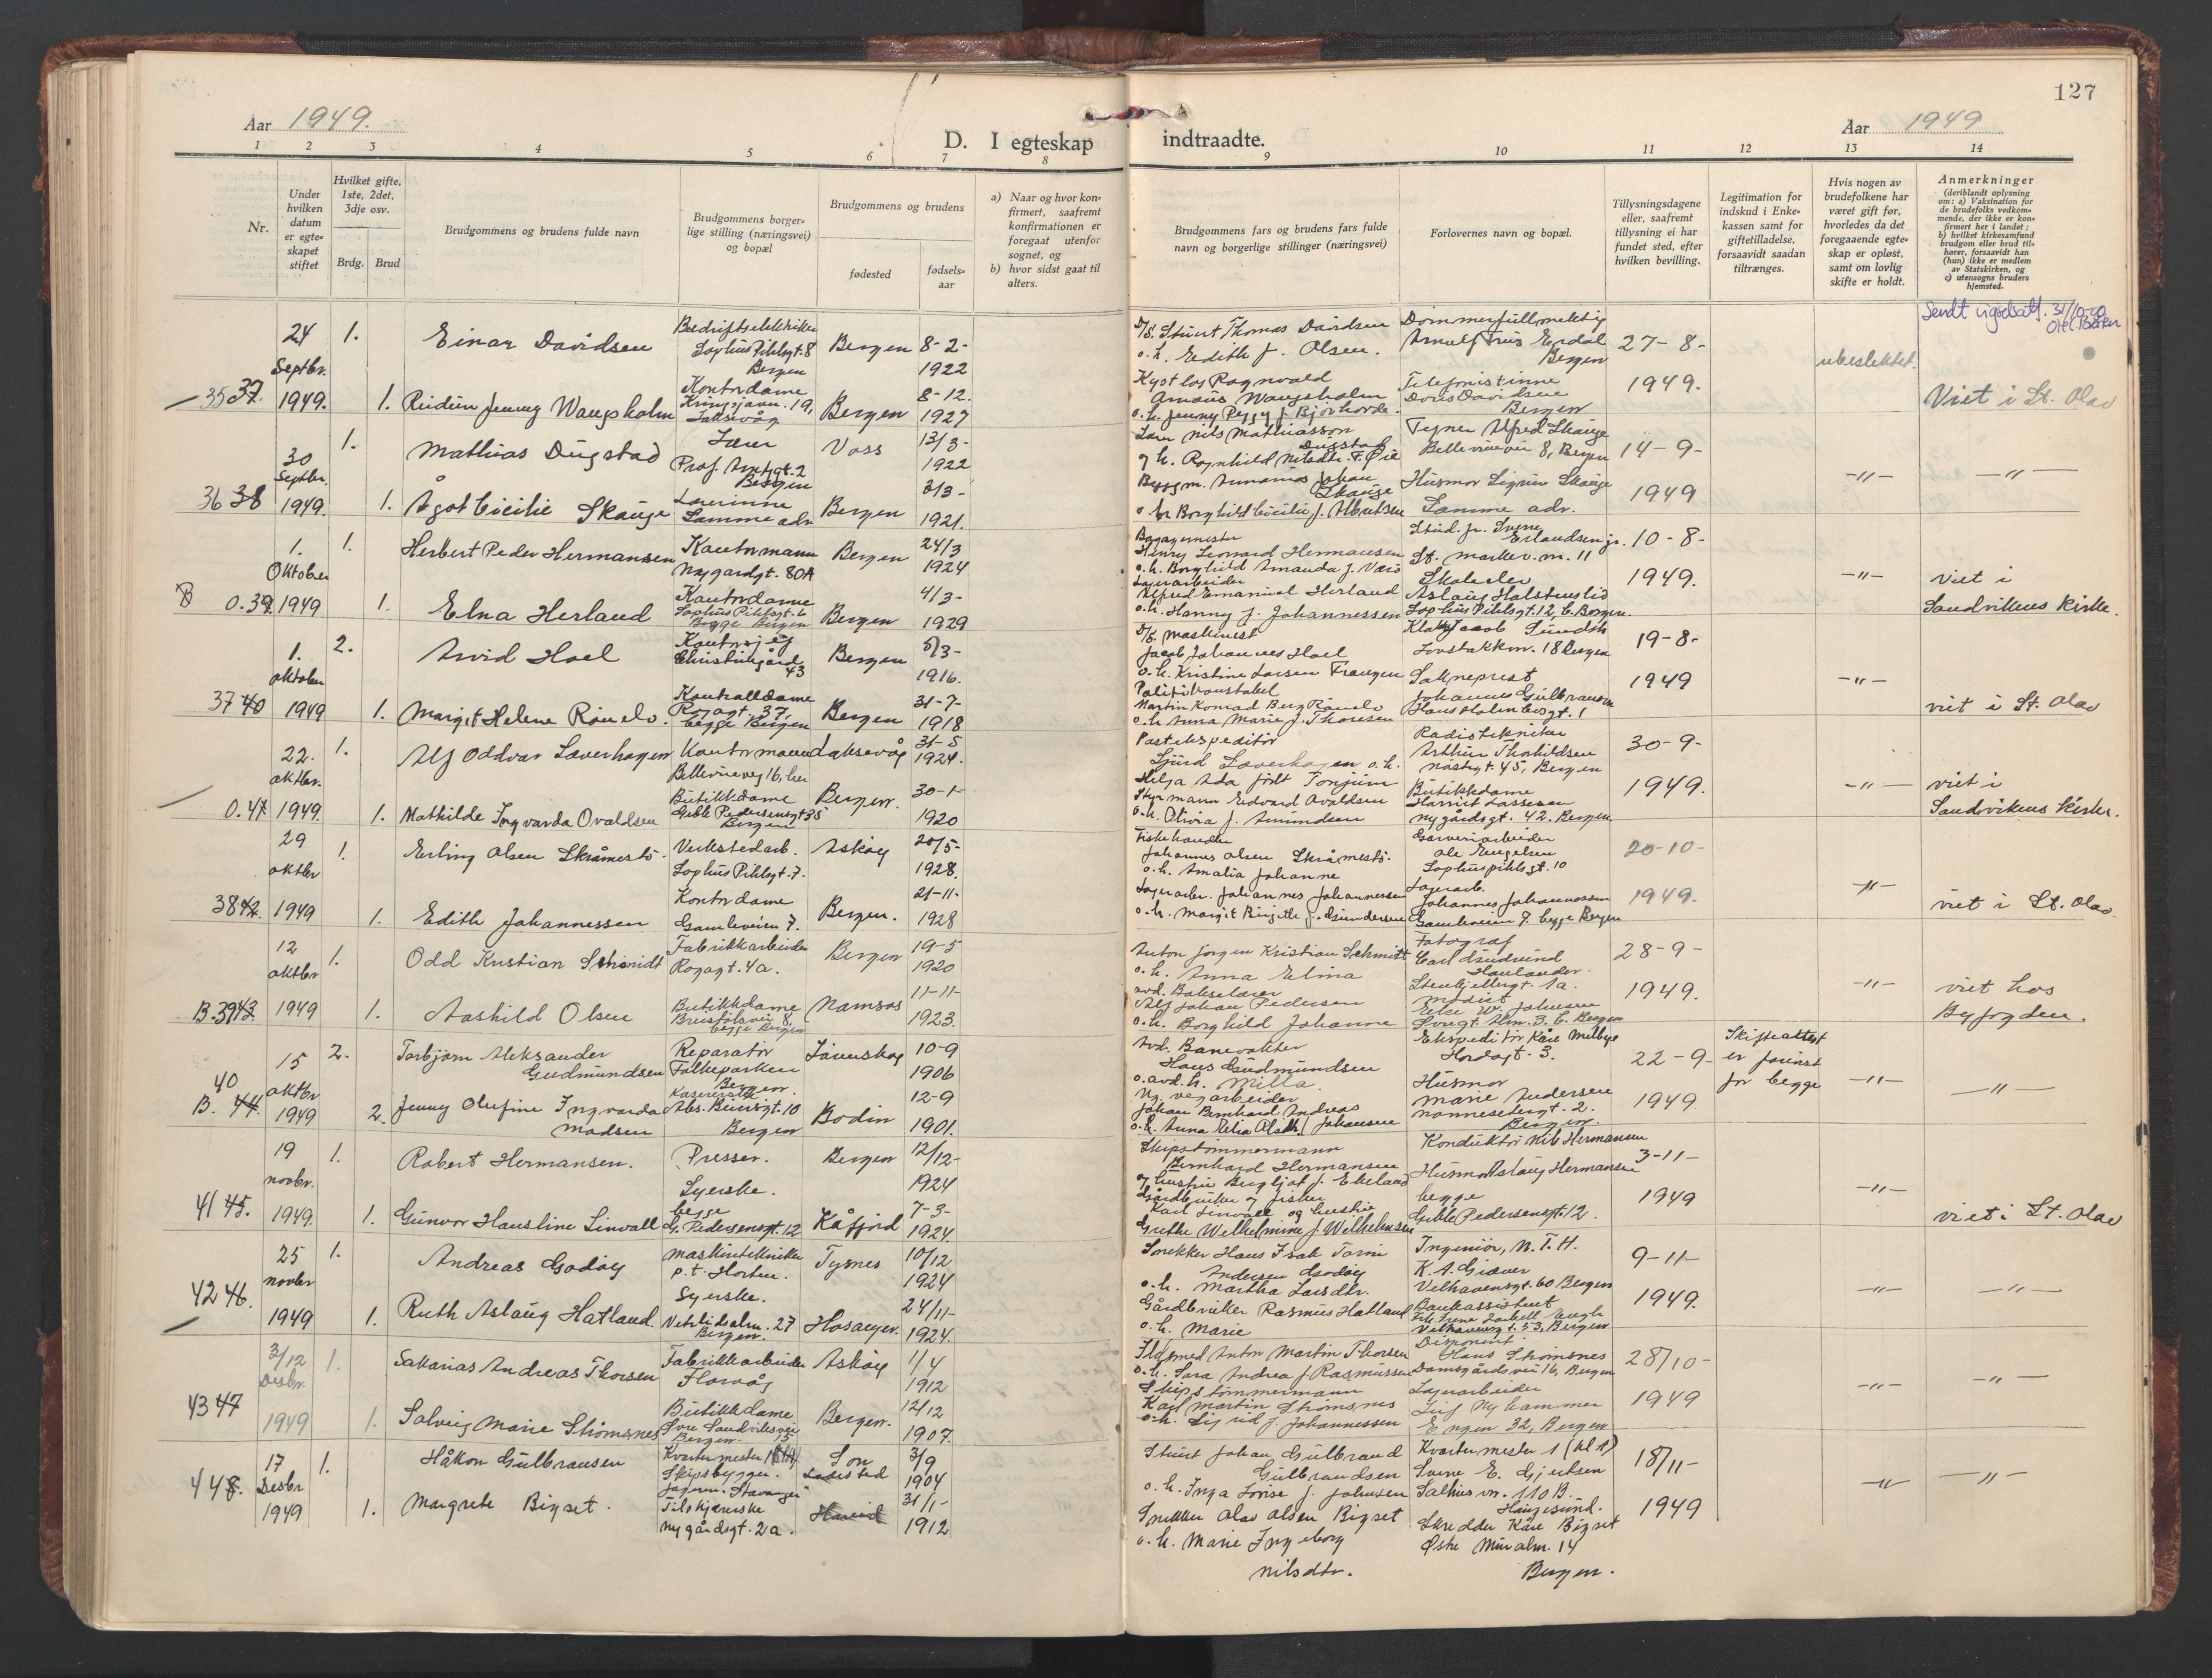 127
Aar 1949.
D. I egteskap indtraadte.
Aar 1949
1 2 3 4 5 6 7 8 9 10 11 12 13 14
Nr.
Under
hvilken
datum
er egte-
skapet
stiftet
Hvilket gifte,
1ste, 2det,
3dje osv.
Brdg. Brud
Brudgommens og brudens fulde navn
Brudgommens borger-
lige stilling (næringsvei)
og bopæl
Brudgommens og brudens
fødested
fødsels-
aar
a) Naar og hvor kon-
firmert, saafremt
konfirmationen er
foregaat utenfor
sognet, og
b) hvor sidst gaat til
alters.
Brudgommens fars og brudens fars fulde
navn og borgerlige stillinger (næringsvei)
Forlovernes navn og bopæl.
Tillysningsdagene
eller, saafremt
tillysning ei har
fundet sted, efter
hvilken bevilling.
Legitimation for
indskud i Enke-
kassen samt for
giftetilladelse,
forsaavidt saadan
tiltrænges.
Hvis nogen av
brudefolkene har
været gift før,
hvorledes da det
foregaaende egte-
skap er opløst,
samt om lovlig
skifte er holdt.
Anmerkninger
(deriblandt oplysning
om: a) Vaksination for
de brudefolks vedkom-
mende, der ikke er kon-
firmert her i landet;
b) hvilket kirkesamfund
brudgom eller brud til-
hører, forsaavidt han
(hun) ikke er medlem
av Statskirken, og
c) utensogns bruders
hjemsted.
35 37.
24
Septbr.
1949.
1.
Einar Davidsen
Bedriftselektriker
Sophus Pihlsgt. 8
Bergen
Bergen
8-2-
1922
1.
Reidun Jenny Waugsholm
Kontordame
19,
Laksevåg
Bergen
8-12.
1927
D/s. Stuert Thomas Davidsen
o. h. Edith f. Olsen.
Kystlos Ragnvald
Waugsholm
o. h. Jenny Peggy f.
Dommerfullmektig
Bergen
Telefonistinne
Doris Davidsen
Bergen
27-8-
1949.
ubeslektet.
Viet i St. Olav
36 38
30
Septbr.
1949.
1.
Mathias Dugstad
Lærer
2
Bergen
Voss
13/3-
1922
1.
Ågot Cicilie Skauge
Lærerinne
Samme adr.
Bergen
3/3-
1921.
Lærer Nils Mathiasson
Dugstad
og h. Ragnhild Nilsdtr. f.
Johan
Skauge
o. h. Borghild Cicilie f.
Tegner Alfred Skauge
8, Bergen
Husmor Sigrun Skauge
Samme adr.
14-9-
1949
-"-
-"-
B 0.39.
1.
Oktober
1949
1.
Herbert Peder Hermansen
Kontormann
Nygardsgt. 80A
Bergen
24/3
1924
1.
Elna Herland
Kontordame
Sophus Pihlsgt. 6
Begge Bergen
Bergen
4/3-
1929
Bagasjemester
Henry Leonard Hermansen
o. h. Borghild Amanda f.
Lagerarbeider
Alfred Emanuel Herland
o. h. Hanny f. Johannessen
Erlandsen jr.
St. Markev. m. 11
Skoleelev
Aslaug Halstenslid
Sophus Pihlsgt. 12, b. Bergen.
10-8-
1949.
-"-
viet i
Sandvikens kirke.
37 40
1.
oktober
1949
2.
Arvid Hoel
43
Bergen
5/3-
1916.
1.
Margit Helene
37,
begge Bergen
Bergen
31-7-
1918
D/s. Maskinist
Jacob Johannes Hoel
o. h. Kristine Larsen
Politikonstabel
Martin Konrad Berg
o. h. Anna Marie f. Thoresen
18 Bergen
Sokneprest
Johannes Gulbransen
1
19-8-
1949
-"-
viet i St. Olav
0.41
22.
oktbr.
1949.
1.
Alf Oddvar Laverhagen
Kontormann
16, her
Laksevåg
31-5
1924.
1.
Mathilde Ingvarda Ovaldsen
Butikkdame
Geble Pedersensgt 35
Bergen
Bergen.
30-1-
1920
Postekspeditør
o. h.
Helga Ada født
Styrmann Edvard Ovaldsen
o. h. Olivia f. Amundsen
Radiotekniker
Arthur Thorkildsen
Nøstegt. 45, Bergen
Butikkdame
Nygårdsgt. 42. Bergen
30-9-
1949.
-"-
viet i
Sandvikens kirke.
38 42.
29
oktbr
1949
1.
Erling Olsen Skråmestø.
Verkstedarb.
Sophus Pihlsgt. 7.
Askøy
20/5-
1928.
1.
Edith Johannessen
Kontordame
Gamleveien 7.
Bergen.
21-11-
1928
Fiskehandler
Johannes Olsen Skråmestø.
o. h. Amalia Johanne
Lagerarb. Johannes Johannessen
o. h. Margit Birgitte f. Gundersen
Garveriarbeider
Ole Engelsen
Sophus pihlsgt. 10
Lagerarb.
Johannes Johannessen
Gamleveien 7. begge Bergen
20-10-
1949.
-"-
viet i St. Olav
B. 39 43.
12
oktbr
1949
1.
Odd Kristian Schmidt
Fabrikkarbeider
4a.
Bergen
19-5
1920
1.
Aashild Olsen
Butikkdame
8,
begge Bergen
Namsos
11-11-
1923.
Anton Jørgen Kristian Schmidt
o. h. Anna Elina
Alf Johan Pedersen
o. h. Borghild Johanne
Fotograf
Carl Gudmund
1a.
Bergen
28-9-
1949.
-"-
viet hos
Byfogden.
40
B. 44.
15
oktbr
1949
2.
Torbjørn Aleksander
Gudmundsen
Reparatør
Falkeparken
Bergen
10-9
1906
2.
Jenny Olufine Ingvarda
Madsen
10
Bergen
Bodin
12-9
1901.
Avd. Banevokter
Hans Gudmundsen
o. avd. h. Milla.
Johan Bernhard Andreas
Johansen
Ekspeditør Kåre Melbye
3.
Husmor
Marie Andersen
Nonnesetergt. 2.
Bergen.
22-9-
1949
Skifteattest
er forevist
for begge
-"-
-"-
41 45.
19
novbr.
1949.
1.
Robert Hermansen.
Presser.
Bergen
12/12-
1924
1.
Gunvor Hansline Linvall
Syerske.
begge
G. Pedersensgt. 12
Kåfjord
7-3-
1924.
Skipstømmermann
Bernhard Hermansen
og hustru Bergljot f. Ekeland
Gårdbruker og fisker
Karl Linvall og hustru
Grethe Wilhelmine f. Wilhelmsen
Konduktør Hermansen
Husmor Aslaug Hermansen
begge
Geble Pedersensgt. 12.
3-11-
1949
-"-
viet i St. Olav
42 46.
25
novbr
1949
1.
Andreas Godøy
maskintekniker
p. t. Horten.
Tysnes
10/12
1924
1.
Ruth Aslaug Hatland.
Syerske.
Vetrlidsalm. 27
Bergen.
Hosanger.
24/11-
1924.
Snekker Hans Isak
Andersen Godøy
o. h. Martha Larsdtr.
Gårdbruker Rasmus Hatland
o. h. Marie
Ingeniør, N. T. H.
K. A. Giæver
Velhavensgt. 60 Bergen
Bankassistent
Velhavensgt. 53, Bergen
9-11-
1949.
-"-
-"-
43 47
3/12
Desbr.
1949
1.
Sakarias Andreas Thorsen
Fabrikkarbeider
Florvåg
Askøy
1/4
1912
1.
Solveig Marie Strømsnes
Butikkdame
Øvre Sandviksvei
Bergen. 15
Bergen.
12/12
1907.
Anton Martin Thorsen
o. h. Sara Andrea f. Rasmussen
Skipstømmermann
Karl Martin Strømsnes
o. h. Sigrid f. Johannessen
Disponent
Hans Strømsnes
Damsgårdsvei 16, Bergen
Lagerarbeider
Leif Nyhammer
Engen 32, Bergen
28/10-
1949
-"-
-"-
44 48.
17
Desbr
1949
1.
Håkon Gulbransen
Kvartermester 1
Stavanger
Son
Ladested
3/9
1904
1.
Margrete Bigset.
Tilskjærerske
Nygårdsgt. 2a.
Hareid
31/1-
1912
Stuert Johan Gulbrand
Gulbrandsen
o. h. Inga Lovise f. Johnsen
Snekker Olav Olsen Bigset
o. h. Marie Ingeborg
Nilsdtr.
Kvartermester 1 (kl 1)
Svene E. Gjertsen
Salhus vn. 110 B.
Haugesund.
Skredder Kåre Bigset
Østre Muralm. 14
Bergen.
18/11-
1949
-"-
-"-